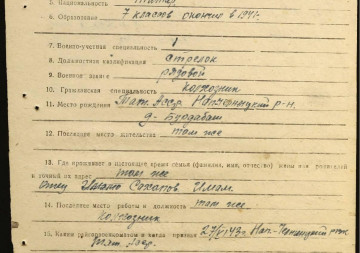 5. Национальность татар
6. Образование 7 классов окончил в 1941 г.
7. Военно-учетная специальность 1
8. Должностная квалификация стрелок
9. Военное звание рядовой
10. Гражданская специальность колхозник
11. Место рождения Тат. Асср. р-н.
д.
12. Последнее место жительства там же
13. Где проживает в настоящее время семья (фамилия, имя, отчество) жены или родителей
и точный их адрес там же
Отец
14. Последнее место работы и должность там же
колхозник
15. Каким райвоенкоматом и когда призван р-ном
Тат. Асср.